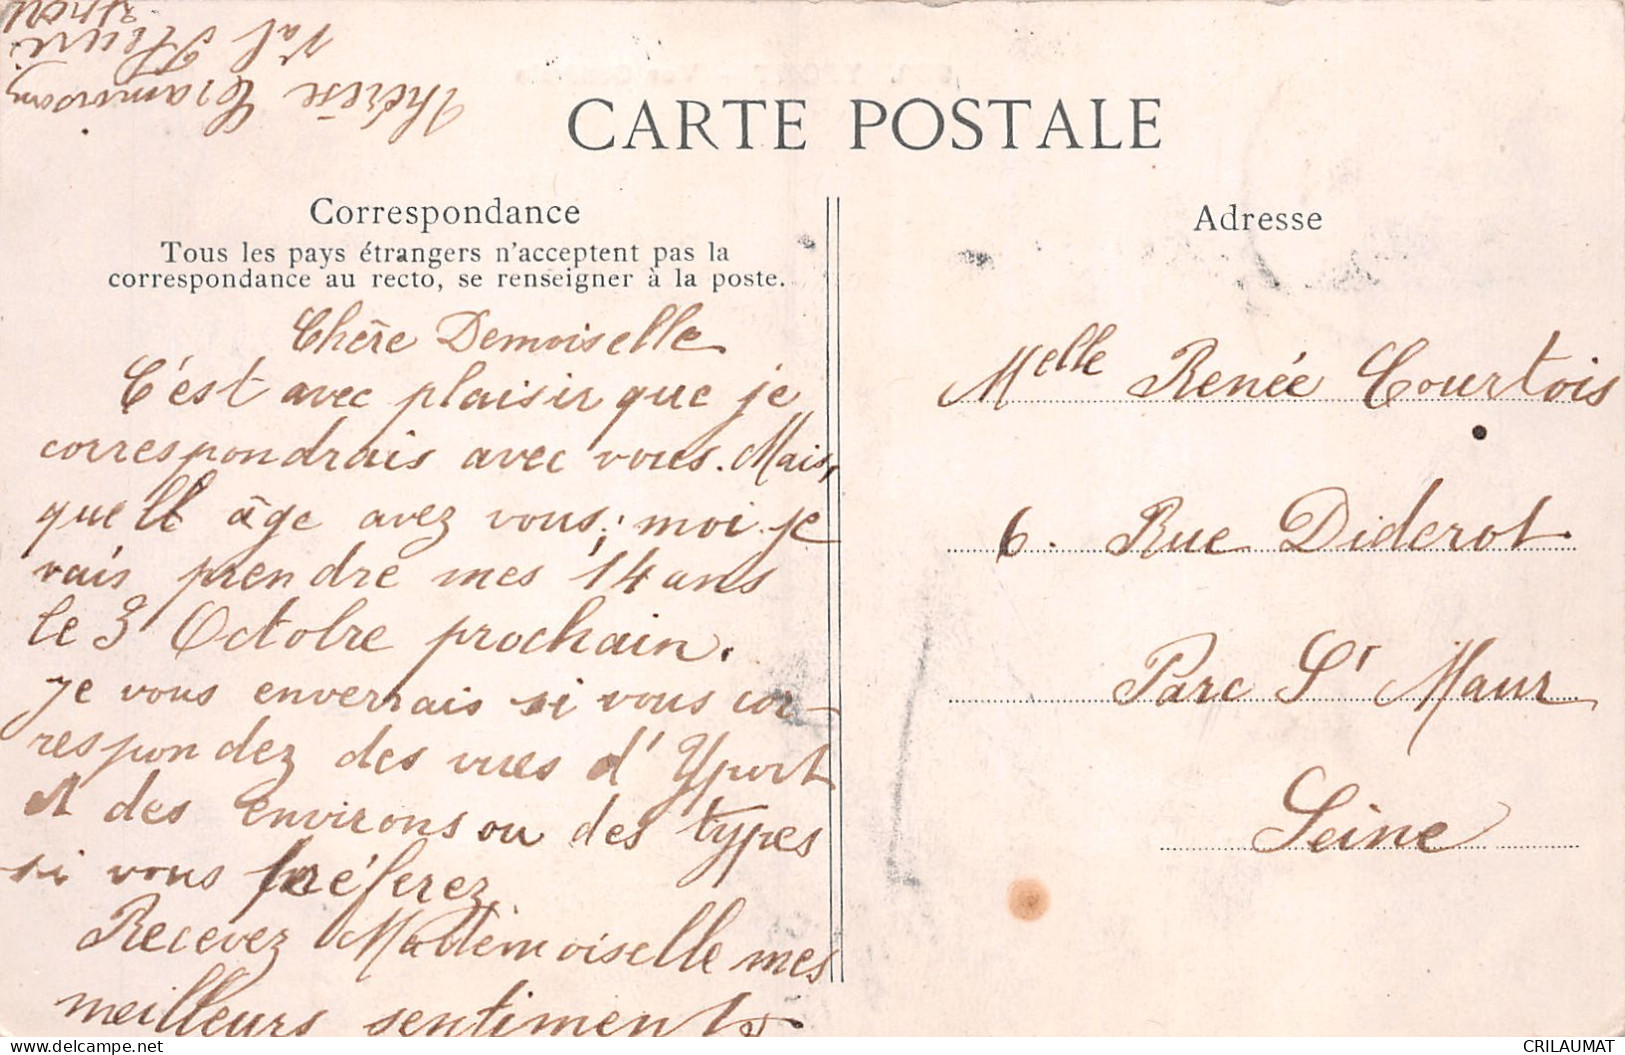 CARTE POSTALE
Correspondance
Tous les pays étrangers n'acceptent pas la
correspondance au recto, se renseigner à la poste.
Chère Demoiselle
C'est avec plaisir que je
correspondrais avec vous. Mais,
quell âge avez vous; moi je
vais prendre mes 14 ans
le 3 Octobre prochain.
je vous enverrais si vous cor-
respondez des vues d'Yport
et des environs ou des types
si vous préferez
Recevez Mademoiselle mes
meilleurs sentiments
Thérèse
Val Fleuri
Yport
Adresse
Melle Renée Courtois
6. Rue Diderot
Parc St Maur
Seine
CRILAUMAT